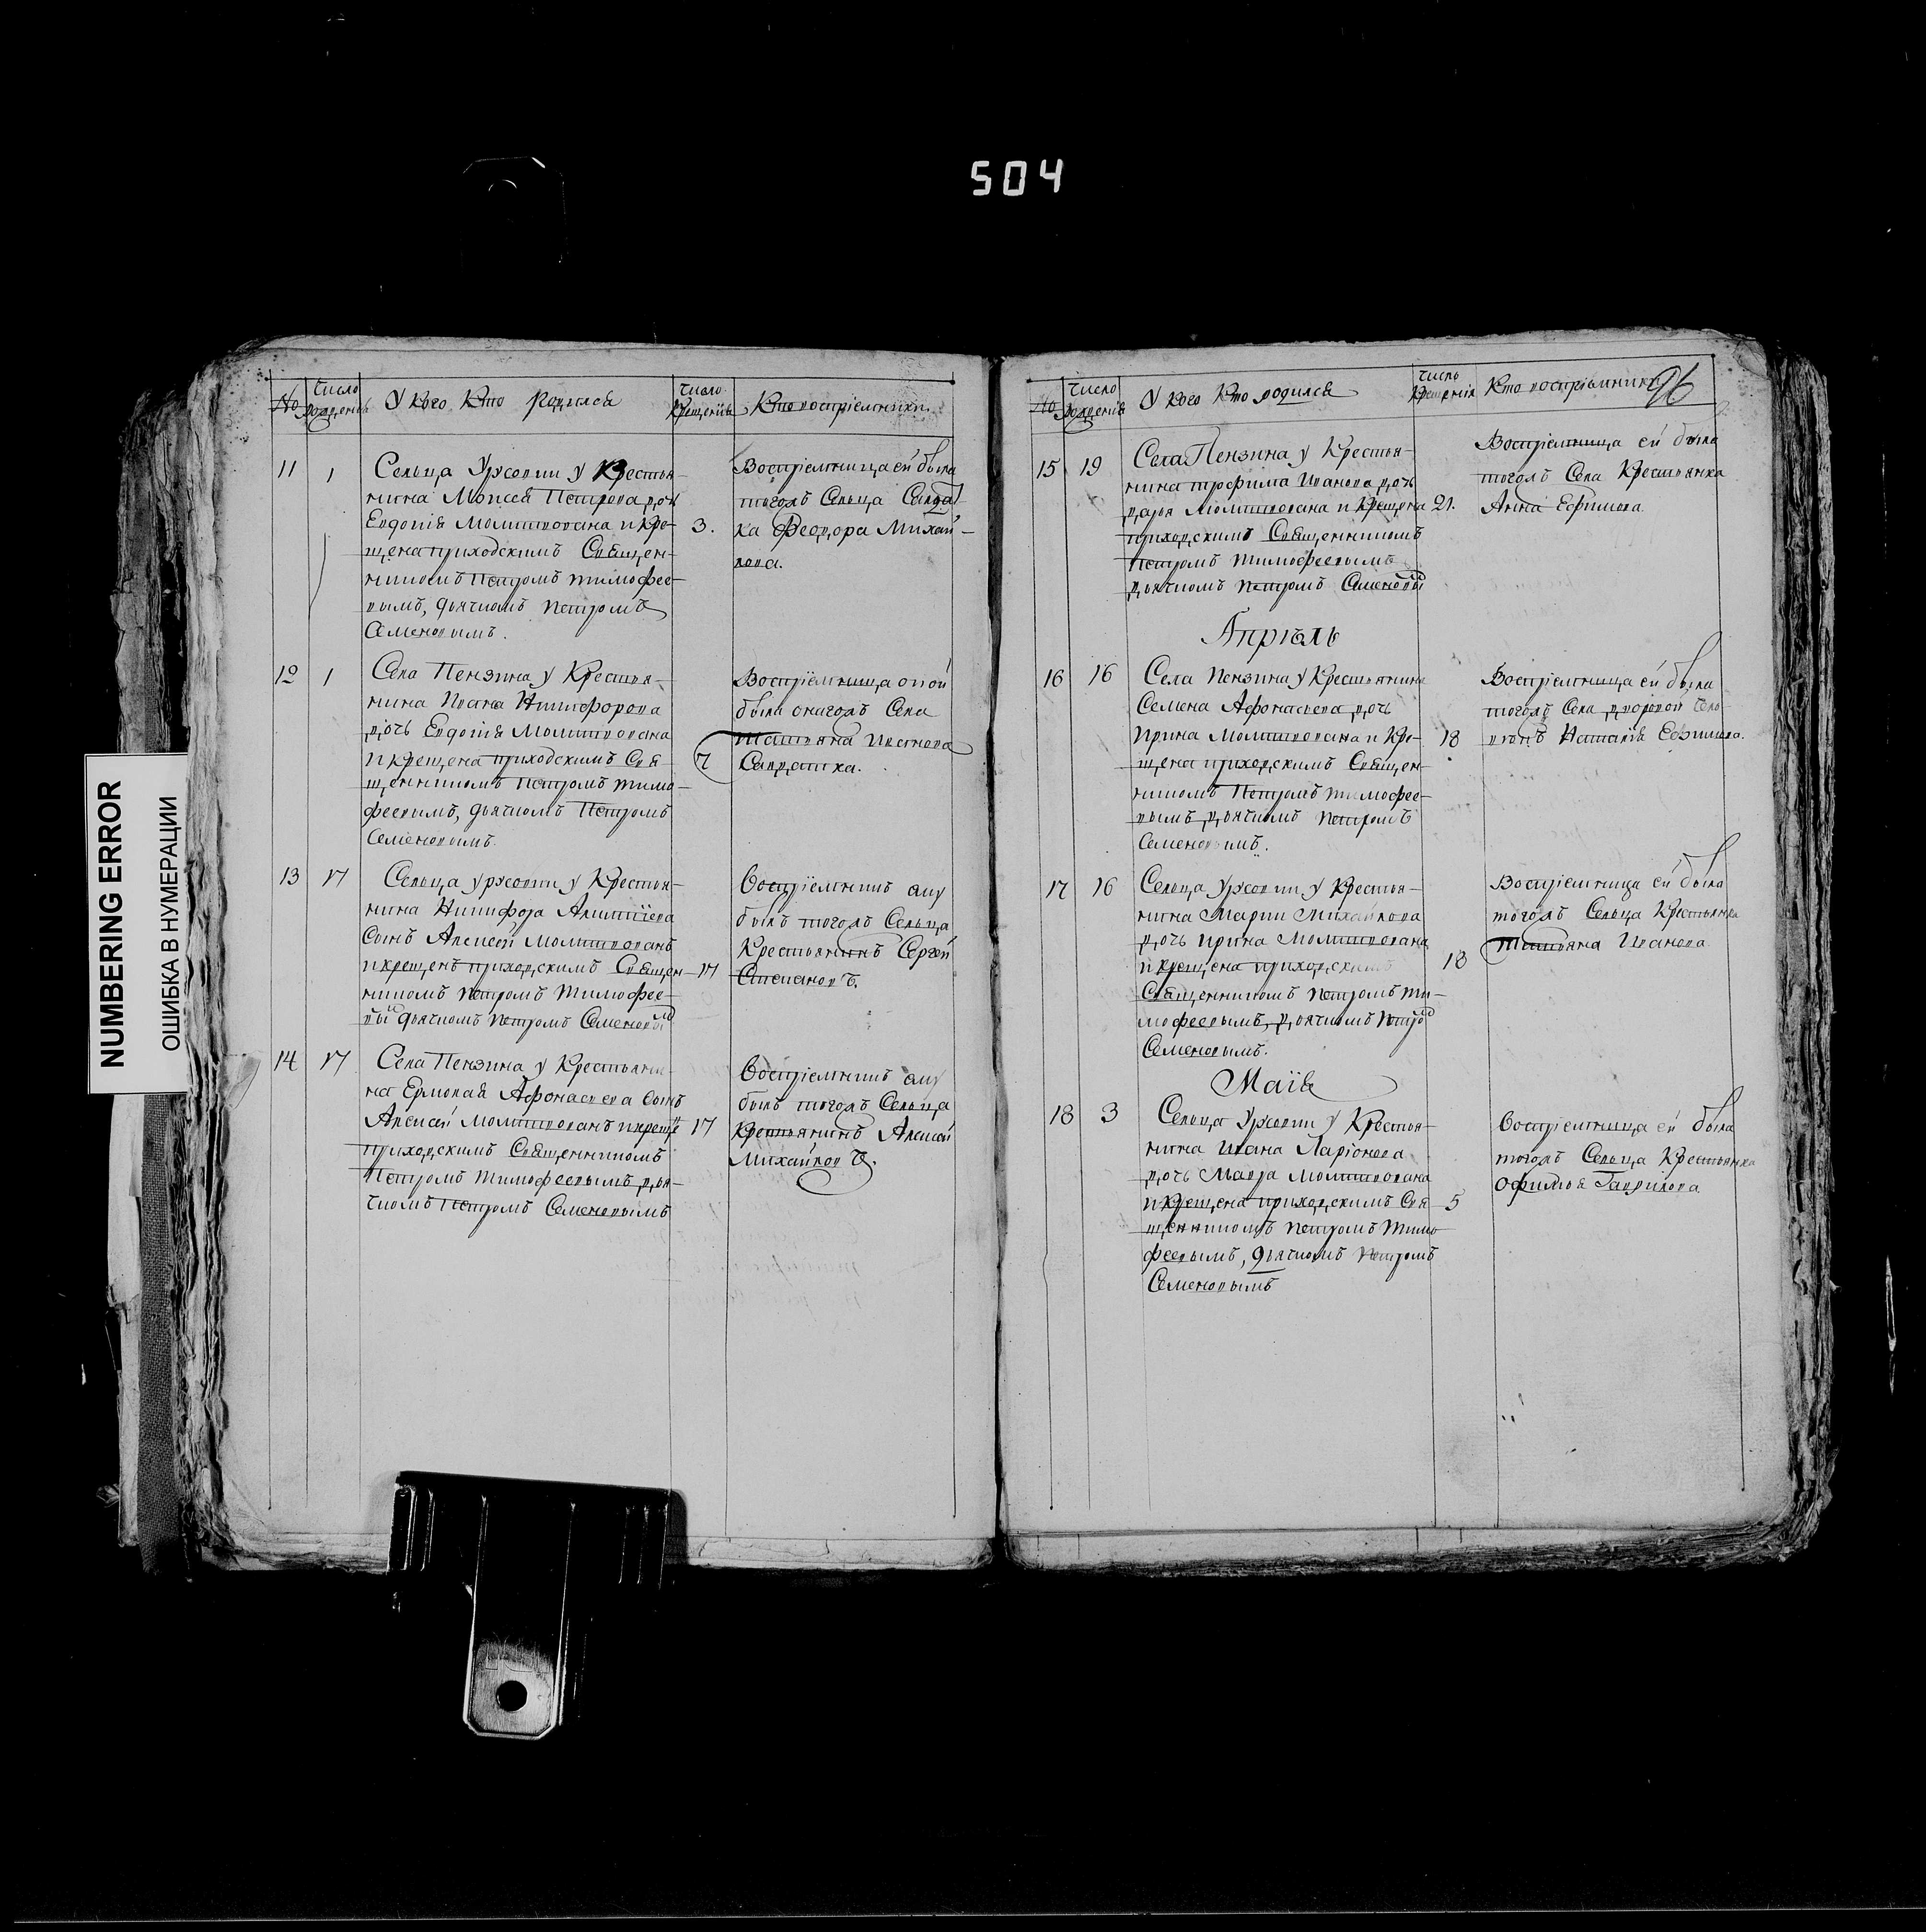 504
NUMBERING ERROR
ОШИБКА В НУМЕРАЦИИ
No
число рожденія
У кого Кто родился
число крещенія
Кто воспріемники.
11
1
Сельца Уржовки у Кресть-
нина Моисея Петрова дочь
Евдокія Молитвована и кре-
щена приходскимъ Священ-
никомъ Петромъ Тимофее-
вымъ, дьячкомъ Петромъ
Семеновымъ.
3.
Воспріемница ей была
тогожъ Сельца Солдат
ка Феодора Михай-
лова.
12
1
Села Пензина у Крестья-
нина Ивана Никифорова
дочь Евдокія Молитвована
и крещена приходскимъ Свя
щенникомъ Петромъ Тимо-
феевымъ, дьячкомъ Петромъ
Семеновымъ.
7
Воспріемница оной
была онагожъ Села
Татьяна Иванова
Солдатка.
13
17
Сельца Уржовки у Крестья-
нина Никифора
сынъ Алексей Молитвованъ
и крещенъ приходскимъ Священ-
никомъ Петромъ Тимофее-
вымъ дьячкомъ Петромъ Семеновым
17
Воспріемникъ ему
былъ тогожъ Сельца
Крестьянинъ Сергей
Степановъ.
14
17
Села Пензина у Крестьяни-
на Ермолая Афонасьева сынъ
Алексей Молитвованъ и креще
приходскимъ Священникомъ
Петромъ Тимофеевымъ, дья-
чкомъ Петромъ Семеновымъ
17
Воспріемникъ ему
былъ тогожъ Сельца
Крестьянинъ Алексей
Михайловъ.
No
число рожденія
У кого Кто родился
число крещенія
Кто воспріемники
96
15
19
Села Пензина у Крестья-
нина Трофима Иванова дочь
Дарья Молитвована и крещена
приходскимъ Священникомъ
Петромъ Тимофеевымъ
дьячкомъ Петромъ Семеновы
21.
Воспріемница ей была
тогожъ Села Крестьянка
Анна Ефимова
Апрѣль
16
16
Села Пензина у Крестьянина
Семена Афонасьева дочь
Ирина Молитвована и Кре-
щена приходскимъ Священ-
никомъ Петромъ Тимофее-
вымъ дьячкомъ Петромъ
Семеновымъ.
18
Воспріемница ей была
тогожъ Села дворовой
Наталія Ефимова.
17
16
Сельца Уржовки у Крестья-
нина Марки Михайлова
дочь Ирина Молитвована
и крещена приходскимъ
Священникомъ Петромъ Ти-
мофеевымъ, дьячкомъ Петро
Семеновымъ.
18
Воспріемница ей была
тогожъ Сельца Крестьянка
Татьяна Иванова
Маія
18
3
Сельца Уржовки у Крестья-
нина Ивана Ларіонова
дочь Мавра Молитвована
и крещена приходскимъ Свя-
щенникомъ Петромъ Тимо
феевымъ, дьячкомъ Петромъ
Семеновымъ
5
Воспріемница ей была
тогожъ Сельца Крестьянка
Офимья Гаврилова